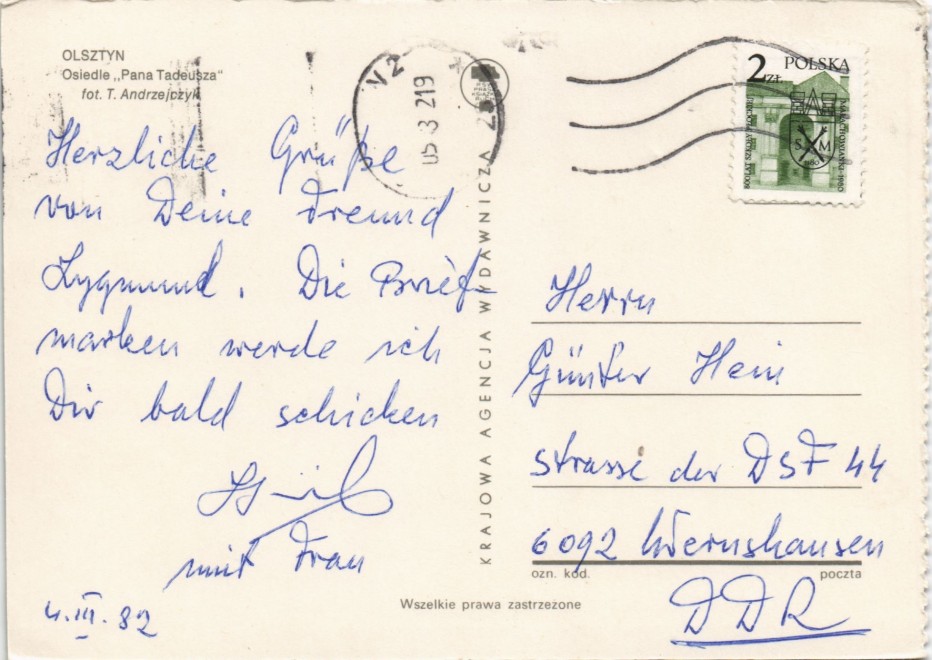 OLSZTYN
Osiedle „Pana Tadeusza"
fot. T. Andrzejczyk
Herzliche Grüße
von Deine Freund
Zygmund. Die Brief-
marken werde ich
Dir bald schicken
mit Frau
4.III.82
KRAJOWA AGENCJA WYDAWNICZA
POLSKA
2 ZŁ
SM
Herrn
Günter Hein
Strasse der DSF 44
6092 Wernshausen
ozn. kod. poczta
DDR
Wszelkie prawa zastrzeżone